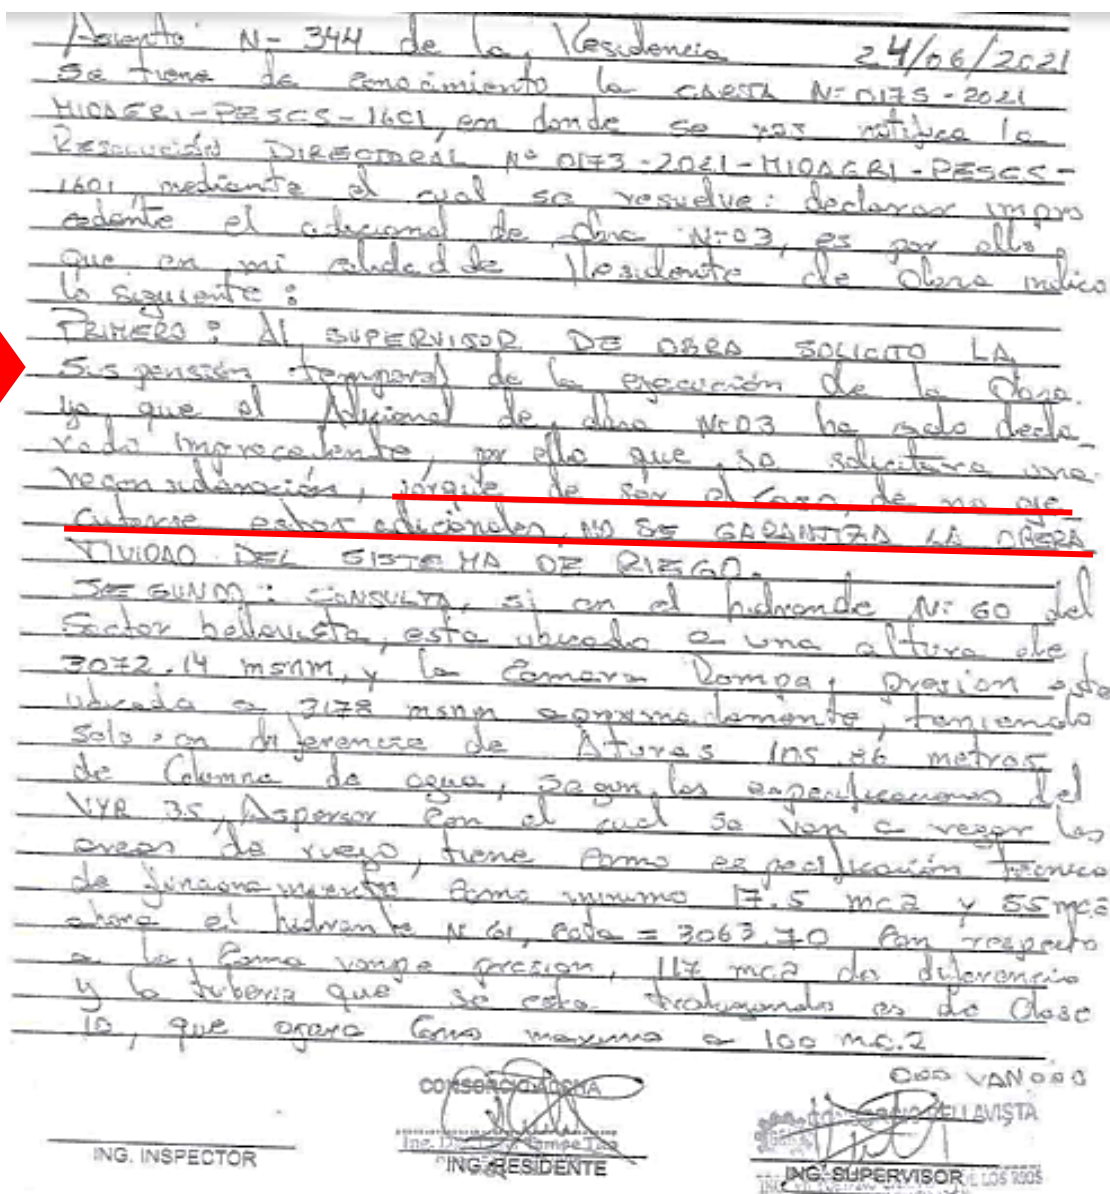 Asiento N- 344 de la Residencia 24/06/2021
Se tiene de conocimiento la CARTA N=0175-2021
MIDAGRI-PESCS-1601, en donde se nos notifica la
RESOLUCIÓN DIRECTORAL Nº 0173-2021-MIDAGRI-PESCS-
1601, mediante el cual se resuelve: declarar impro
cedente el adicional de obra Nº03, es por ello
que en mi calidad de Residente de Obra indico
lo siguiente:
PRIMERO: Al SUPERVISOR DE OBRA SOLICITO LA
Suspensión temporal de la ejecución de la Obra.
ya que el Adicional de obra Nº03 ha sido decla_
rado improcedente, por ello que se solicitara una
reconsideración, porque de ser el caso, de no eje
cutarse estos adicionales, NO SE GARANTIZA LA OPERA
TIVIDAD DEL SISTEMA DE RIEGO.
SEGUNDO: CONSULTA, si en el hidrande N: 60 del
Sector bellavista, esta ubicado a una altura de
3072.14 msnm, y la Camara Rompe presion este
ubicada a 3178 msnm aproximadamente, teniendo
Solo en diferencia de Aturas 105.86 metros
de Columna de agua, Segun las especificaciones del
VYR 35, Aspersor con el cual se van a regar las
areas de riego, tiene como especificación técnica
de funcionamiento como minimo 17.5 mca y 55 mca
ahora el hidrante N 61, cota = 3063.70 Con respecto
a la rompe presion, 117 mca de diferencia
y la tuberia que se esta trabajando es de Clase
10, que Como maximo a 100 m.c.a
ooo VAN ooo
CONSORCIO
BELLAVISTA
ING. INSPECTOR
ING. RESIDENTE
ING. SUPERVISOR